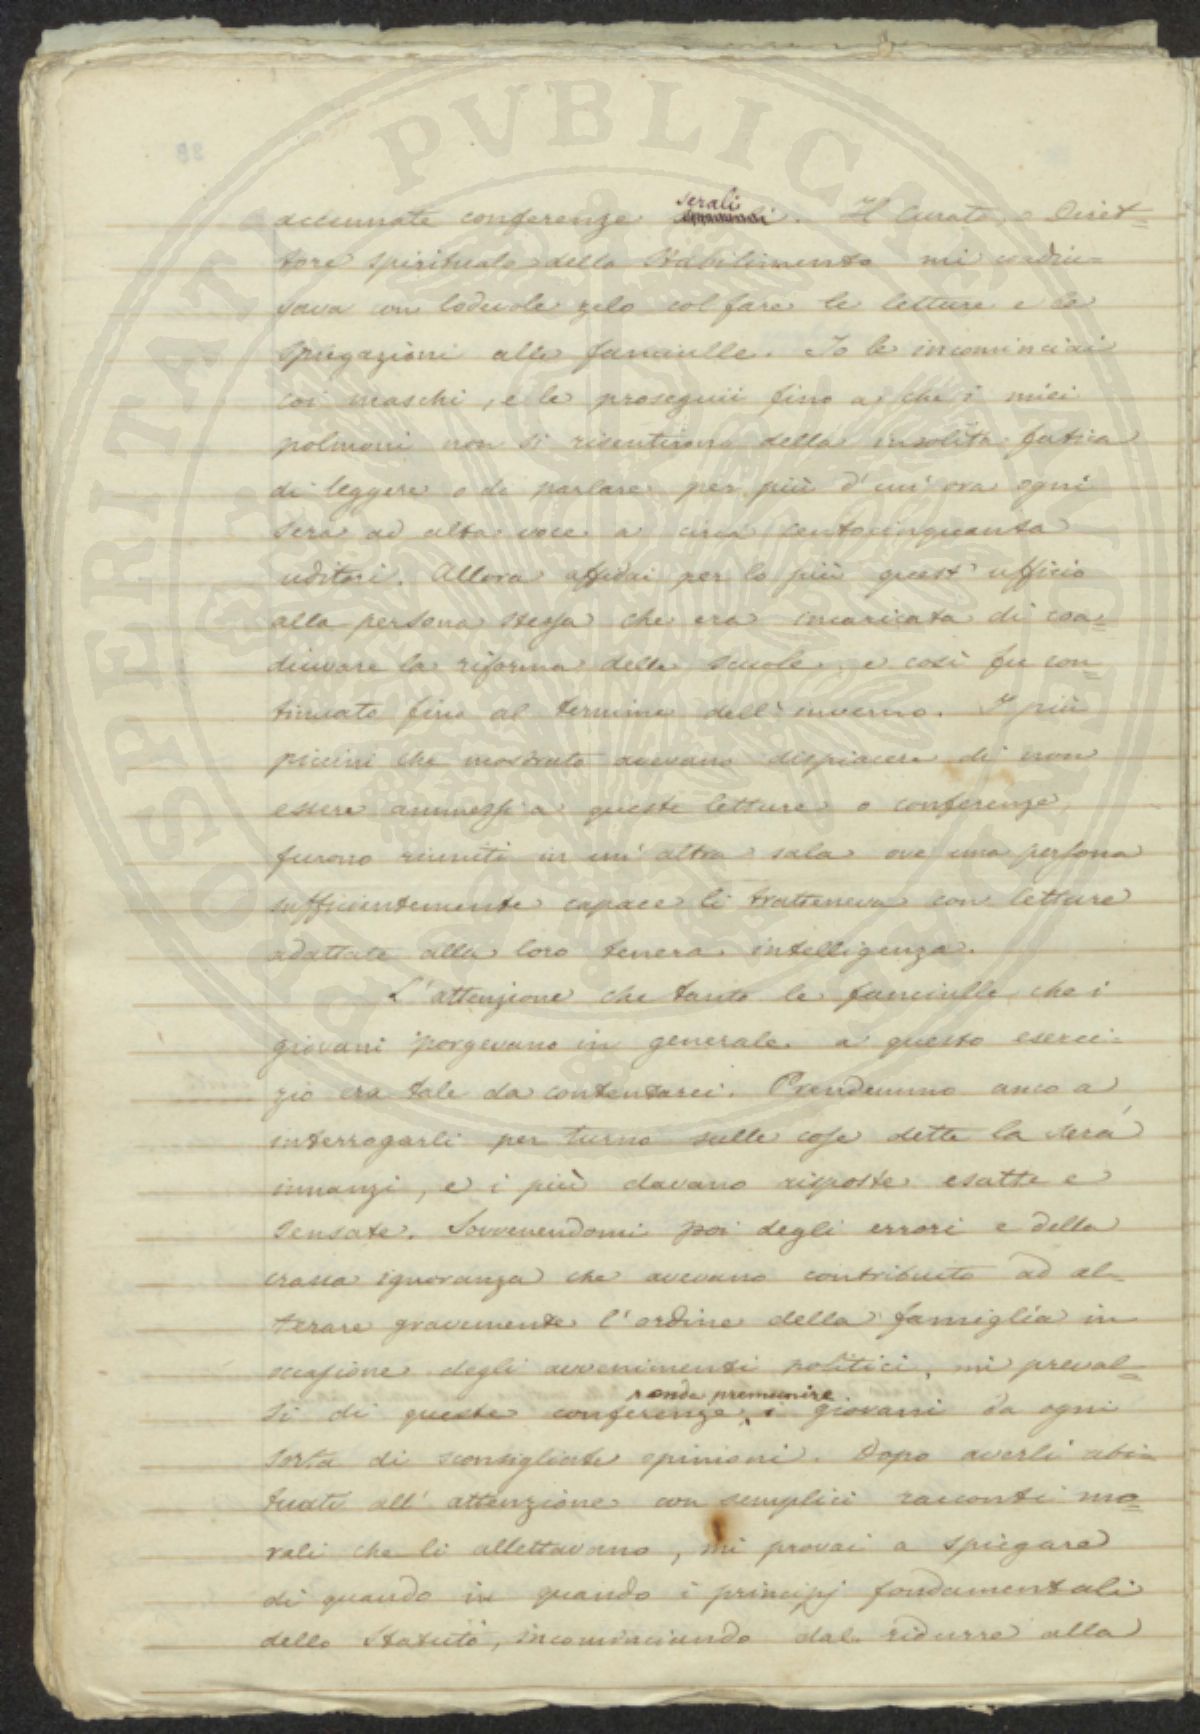 accennate conferenze serali. Il Curato, e Diret=
tore spirituale dello Stabilimento mi coadiu=
vava con lodevole zelo col fare le letture e le
spiegazioni alle fanciulle. Io le incominciai
coi maschi, e le proseguii fino a che i miei
polmoni non si risentirono della insolita fatica
di leggere o di parlare per più d'un'ora ogni
sera ad alta voce a circa centocinquanta
uditori. Allora affidai per lo più quest'ufficio
alla persona stessa che era incaricata di coa=
diuvare la riforma delle scuole, e così fu con=
tinuato fino al termine dell'inverno. I più
piccini che mostrato avevano dispiacere di non
essere ammessi a queste letture o conferenze,
furono riuniti in un'altra sala ove una persona
sufficientemente capace li tratteneva con letture
adattate alla loro tenera intelligenza.
L'attenzione che tanto le fanciulle che i
giovani porgevano in generale a questo eserci=
zio era tale da contentarci. Prendemmo anco a
interrogarli per turno sulle cose dette la sera
innanzi, e i più davano risposte esatte e
sensate. Sovvenendomi poi degli errori e della
crassa ignoranza che avevano contribuito ad al=
terare gravemente l'ordine della famiglia in
occasione degli avvenimenti politici, mi preval=
si di queste conferenze, onde premunire i giovani da ogni
sorta di sconsigliate opinioni. Dopo averli abi=
tuati all'attenzione con semplici racconti mo=
rali che li allettavano, mi provai a spiegare
di quando in quando i principj fondamentali
dello Statuto, incominciando dal ridurre alla